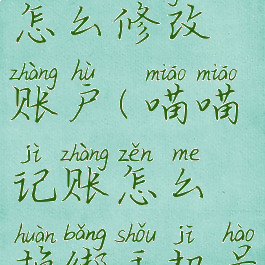 怎么修改
zhàng hù miāo miāo
账户(喵喵
jì zhàng zěn me
记账怎么
huàn bǎng shǒu jī hào
换绑手机号